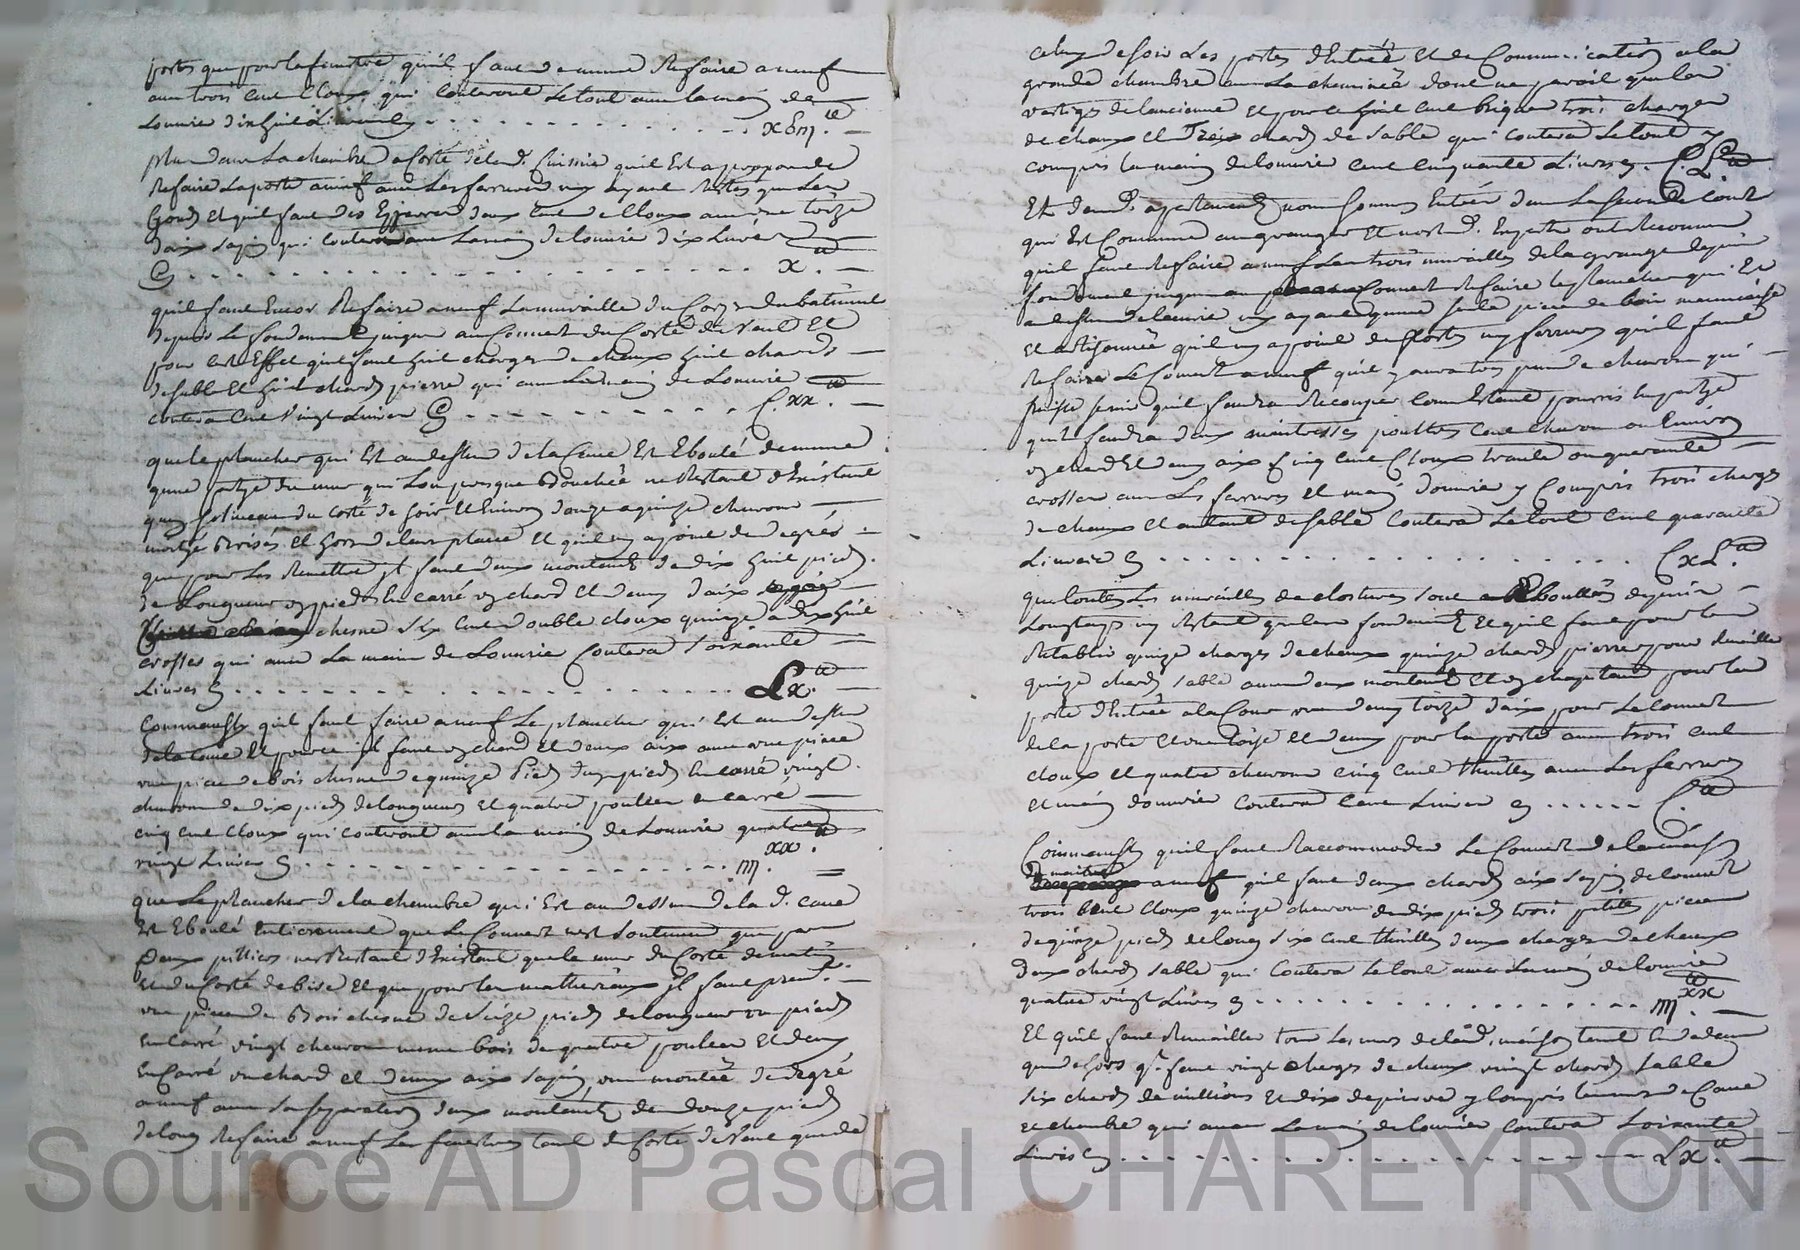 portes que pour la fenestre qu'il faut de mesme Refaire a neuf
avec trois cent Cloux qui Couteront Le tout avec la main de
Louvrie dix huit Livres . . . xviii.ll
plus dans La chambre a Costé de lad. Cuisine quil Est a propos de
Refaire La porte a neuf avec Les ferrures ny ayant Resté que Les
Gonds Et quil faut deux cent de Cloux avec une toize
daix sapin qui coutera avec La main de louvrie dix Livres
. . . x.ll
quil faut Encor Refaire a neuf La muraille du Corps du batiment
depuis Le fondement jusques au Couvert du Costé du Vent Et
pour cet Effet quil faut huit charges de chaux huit chards
de sable Et huit chards pierre qui avec La main de Louvrie
coutera Cent Vingt Livres . . . C.xx.ll
que le plancher qui Est au dessus de la Cave Est Eboulé de mesme
qune partye du mur qui Lon presque Bouchée ne Restant d'Existant
que soliveau du costé de soir Et Environ donze a quinze chevrons
moitié Brisés Et hors de leur place Et quil ny a point de degrés
que pour Les Remettre jl faut deux montants de dix huit pieds
de Longueur pieds En carré chard Et demy daix
chesne six cent double cloux quinze a dix huit
crosses qui avec La main de Louvrie Coutera soixante
Livres . . . Lx.ll
Comme aussy quil faut faire a neuf Le plancher qui Est au dessus
de la cave Et pour ce jl faut chard Et deux aix avec une piece
une piece de Bois chesne de quinze Pieds dun pied En carré vingt
chevrons de dix pieds de longueur Et quatre pouces en carré
cinq cent Cloux qui couteront avec la main de Louvrie quatre
vingt Livres . . . iiii.xx.ll
que Le plancher de la chambre qui Est au dessus de la d. cave
Est Eboulé Entierement que Le Couvert nest soutenu que par
Deux pilliers ne Restant d'Existant que le mur du Costé de matin
Et du Costé de bise Et que pour les matheriaux jl faut
une piece de Bois chesne de seize pieds de longueur un pied
En carré vingt chevrons mesme bois de quatre pouces Et demy
En Carré un chard Et demy aix sapin une montée de degré
a neuf avec sa separation deux montants de douze pieds
de long Refaire a neuf Les fenestres tant du Costé de Vent que de
celuy de soir Les portes d'Entrée Et de Communication a la
grande chambre avec La cheminée dont ne paroit que les
vestiges de lancienne Et pour ce huit cent briques trois charges
de chaux Et Treize chards de sable qui coutera Le tout y
compris La main de louvrie Cent Cinquante Livres . C.L.ll
Et dans d. apartements nous sommes Entrés dans La seconde Cour
qui Est Commune au granger Et nosd. Experts ont Reconnu
quil faut Refaire a neuf Les trois murailles de la grange depuis
fondement jusques au Couvert Refaire Le plancher qui Est
au dessus de lecurie ny ayant qune seule piece de bois mauvaise
Et quil ny a point de portes ny ferrures quil faut
Refaire Le Couvert a neuf quil y aura tres peu de chevrons qui
puisse servir quil faudra Recouper Comme Estant pourris En partye
quil faudra deux maitresses pouttres cent chevrons ou Environ
chard Et demy aix Cinq cent Cloux trente ou quarante
crosses avec Les ferrures Et main douvrie y Compris trois charges
de chaux Et autant de sable Coutera Le tout Cent quarante
Livres . . . CxL.ll
que toutes Les murailles de clostures sont Eboullées depuis
Longtemps ny Restant que les fondements Et quil faut pour les
Retablir quinze charges de chaux quinze chards pierre pour
quinze chards sable avec deux montants Et chapiteau pour la
porte d'Entrée a la Cour une demy toize daix pour Le couvert
de la porte Et une toise Et demy pour la porte avec trois cent
cloux Et quatre chevrons cinq cent thuilles avec Les ferrures
Et main douvrie Coutera Cent Livres . . . C.ll
Comme aussy quil faut Raccommoder Le Couvert de la maison
du maitre a neuf quil faut deux chards aix sapin de couvert
trois cent cloux quinze chevrons de dix pieds trois petites pieces
de quinze pieds de long six cent thuilles deux charges de chaux
deux chards sable qui Coutera Le tout avec La main de louvrie
quatre vingt Livres . . . iiii.xx.ll
Et quil faut Remailler tous Les murs de lad. maison tant En dedans
que dehors quil faut vingt charges de chaux vingt chards sable
six chards de millions Et dix de pierre y Compris Les murs de Cave
Et chambre qui avec La main de louvrie Coutera soixante
Livres . . . Lx.ll
Source AD Pascal CHAREYRON